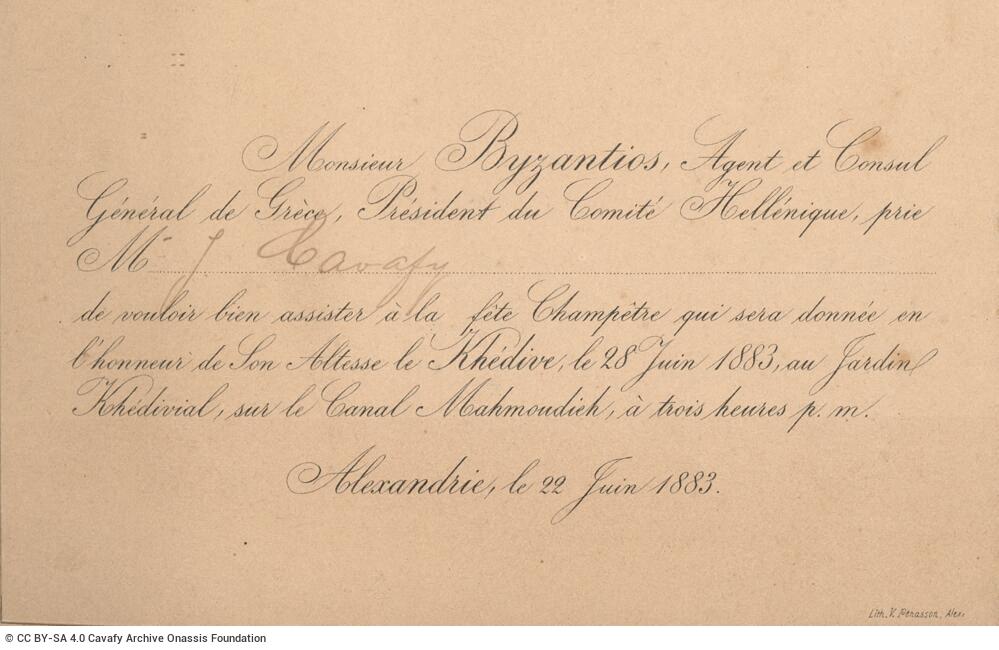 Monsieur Byzantios, Agent et Consul
Général de Grèce, Président du Comité Hellénique, prie
Mr J Cavafy
de vouloir bien assister à la fête Champêtre qui sera donnée en
l'honneur de Son Altesse le Khédive, le 28 Juin 1883, au Jardin
Khédivial, sur le Canal Mahmoudieh, à trois heures p. m.
Alexandrie, le 22 Juin 1883.
Lith. V. Penasson, Alex.
© CC BY-SA 4.0 Cavafy Archive Onassis Foundation